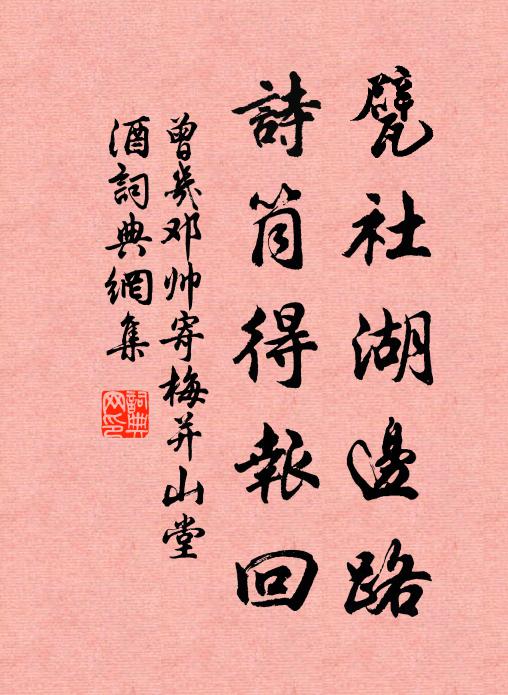 甓社湖邊路
詩筒得報回
曾幾邓帅寄梅并山堂
酒詞典網集
詞典
网印